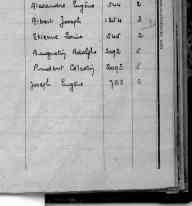 Alexandre Eugène 544 2
Albert Joseph 1254 2
Etienne Louis 545 2
Augustin Adolphe 2092 5
Prudent Célestin 2095 5
Joseph Eugène 703 6